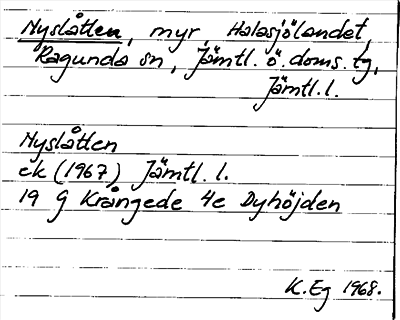 Nyslåtten, myr, Halasjölandet,
Ragunda sn, Jämtl. ö. doms. tg,
Jämtl.l.
Nyslåtten
ek (1967) Jämtl. l.
19 G Krångede 4e Dyhöjden
K. Eg 1968.